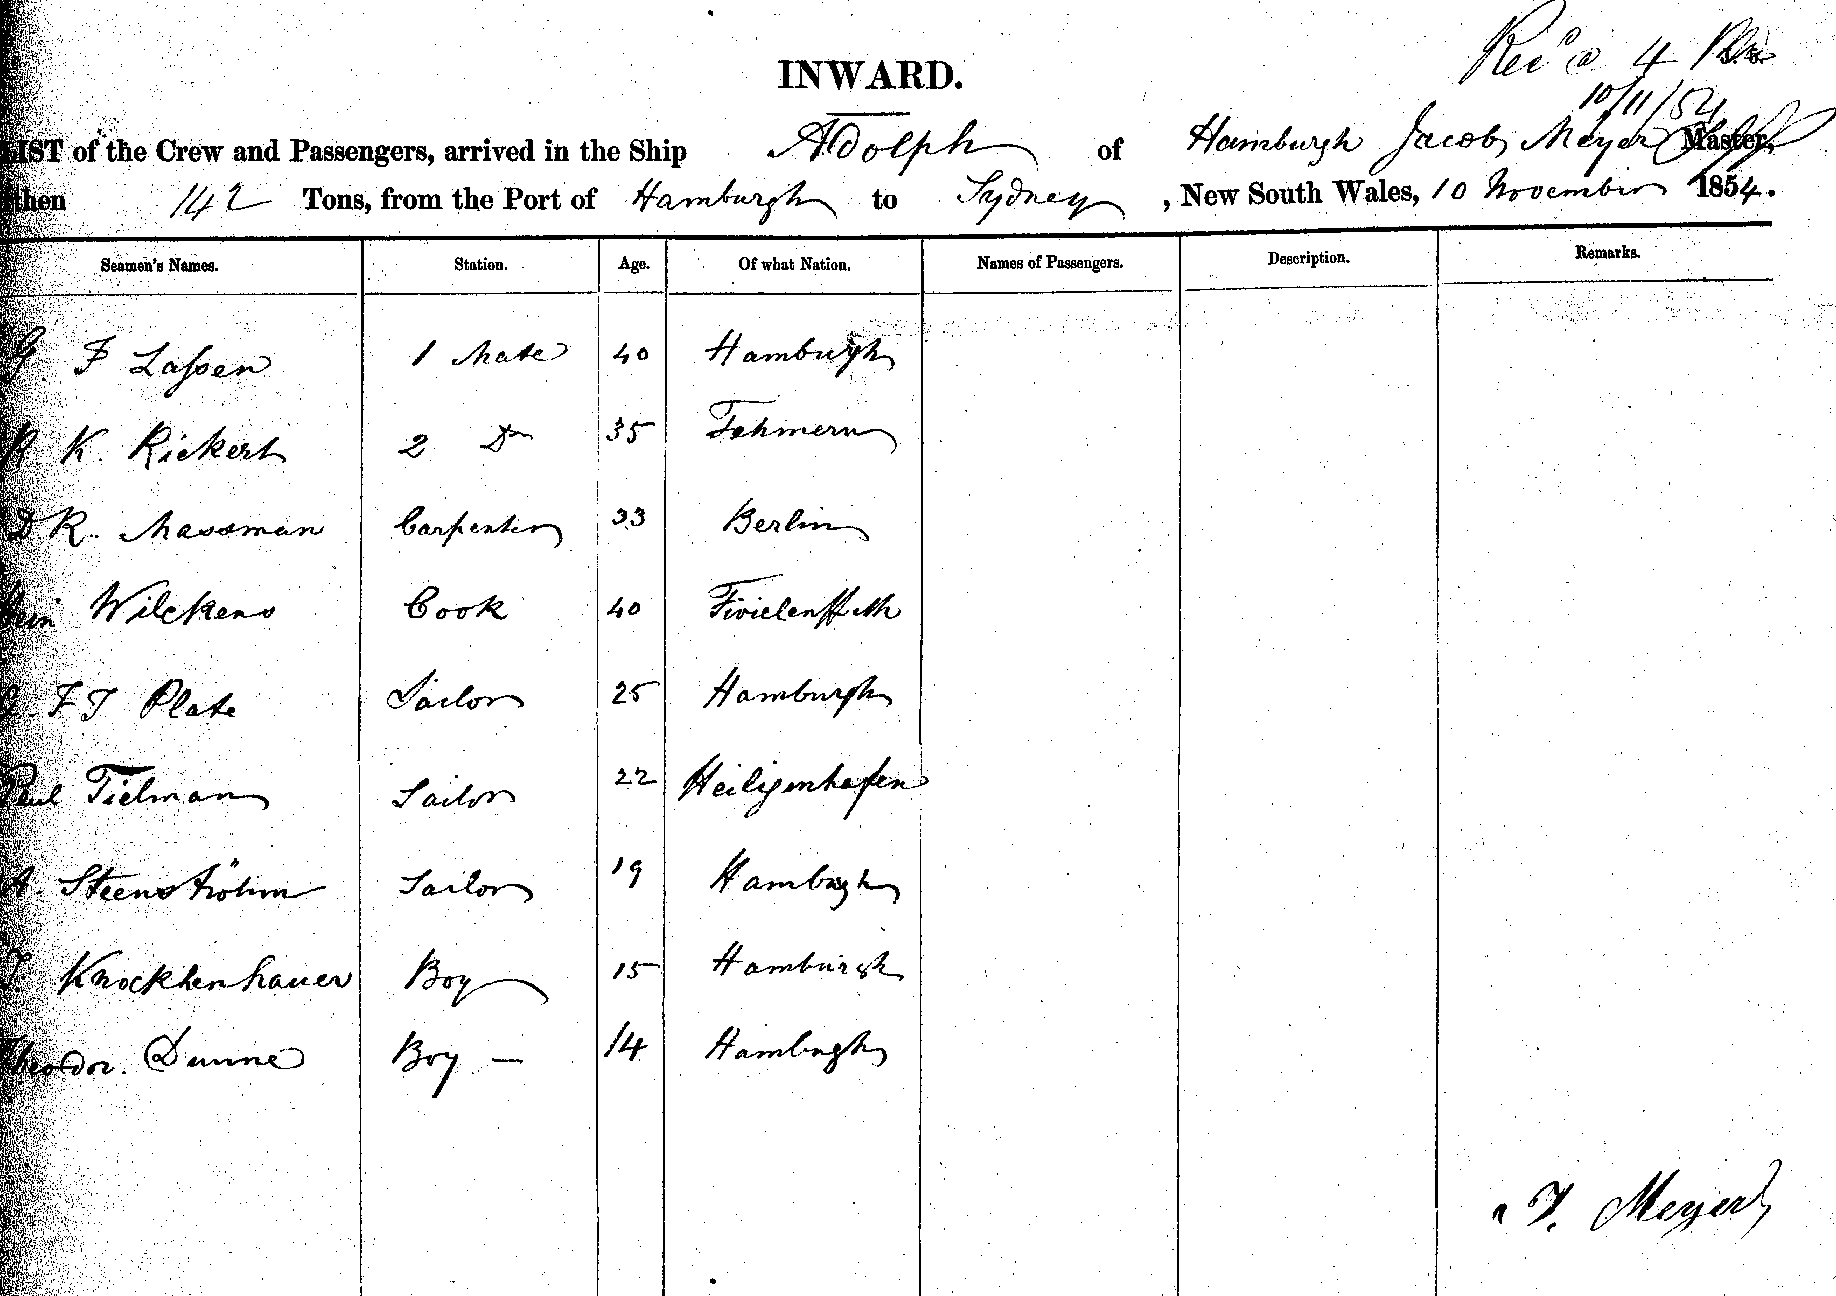 Rec'd 4 Pm
10/11/54
INWARD.
LIST of the Crew and Passengers, arrived in the Ship Adolph of Hamburgh Jacob Meyer Master,
then 142 Tons, from the Port of Hamburgh to Sydney, New South Wales, 10 November 1854.
Seamen's Names. Station. Age. Of what Nation. Names of Passengers. Description. Remarks.
G. F Lassen 1 Mate 40 Hamburgh
R K. Rickert 2 Do 35 Fehmern
D R. Massman Carpenter 33 Berlin
Hein Wilckens Cook 40
F J Plate Sailor 25 Hamburgh
Paul Tielman Sailor 22 Heiligenhafen
A. Steenströhm Sailor 19 Hamburgh
J Knockkenhauer Boy 15 Hamburgh
Theodor. Dunne Boy — 14 Hamburgh
J. Meyer